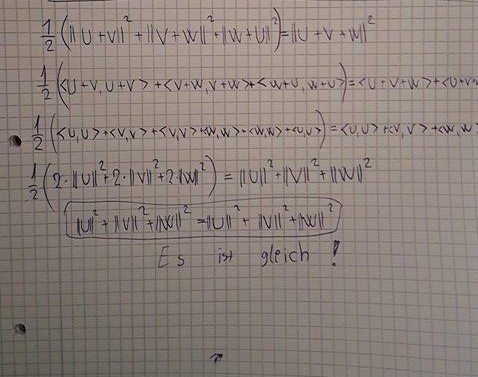 1/2 (||U+V||² + ||V+W||² + ||W+U||²) = ||U+V+W||²
1/2 (<U+V,U+V> + <V+W,V+W> + <W+U,W+U>) = <U+V+W> + <U+V+W
1/2 (<U,U> + <V,V> + <V,V> + <W,W> + <W,W> + <U,U>) = <U,U> + <V,V> + <W,W>
1/2 (2·||U||² + 2·||V||² + 2·||W||²) = ||U||² + ||V||² + ||W||²
||U||² + ||V||² + ||W||² = ||U||² + ||V||² + ||W||²
Es ist gleich !